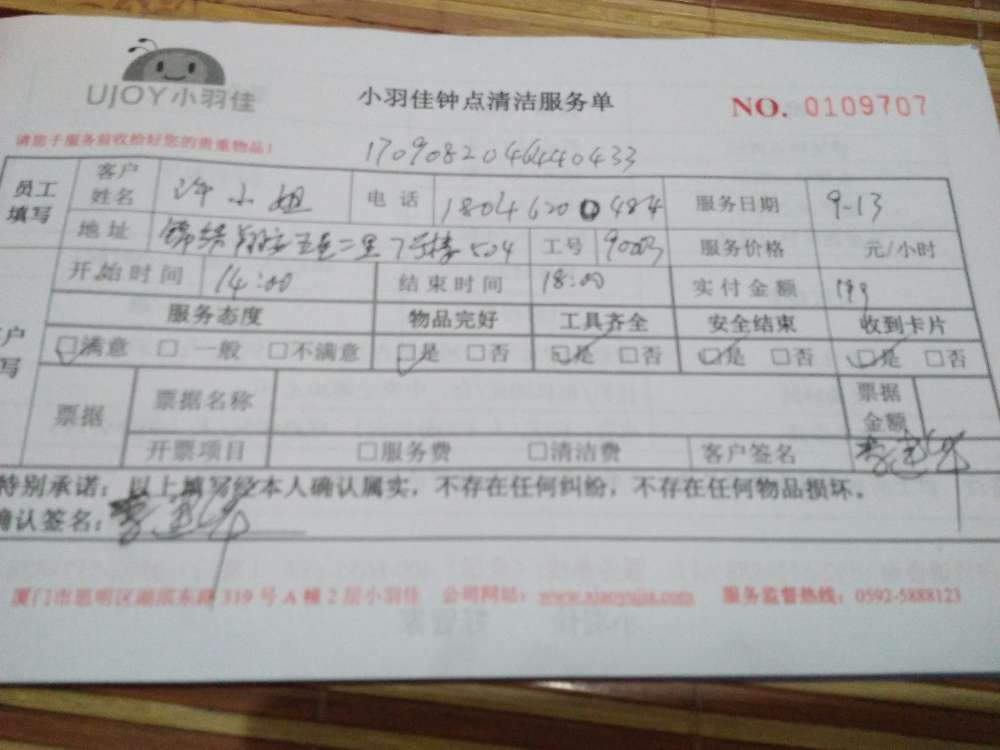 UJOY小羽佳
小羽佳钟点清洁服务单
NO. 0109707
请您于服务前收拾好您的贵重物品!
170908204644043​3
员工填写 客户姓名 许小姐 电话 18046200484 服务日期 9-13
地址 锦绣翔安五里二里7号楼504 工号 服务价格 元/小时
开始时间 14:00 结束时间 18:00 实付金额
户写 服务态度 物品完好 工具齐全 安全结束 收到卡片
□满意 □一般 □不满意 □是 □否 □是 □否 □是 □否 □是 □否
票据 票据名称 票据金额
开票项目 □服务费 □清洁费 客户签名
特别承诺:以上填写经本人确认属实,不存在任何纠纷,不存在任何物品损坏。
确认签名:
厦门市思明区湖滨东路 319 号 A 幢 2 层小羽佳 公司网站: 服务监督热线:0592-5888123